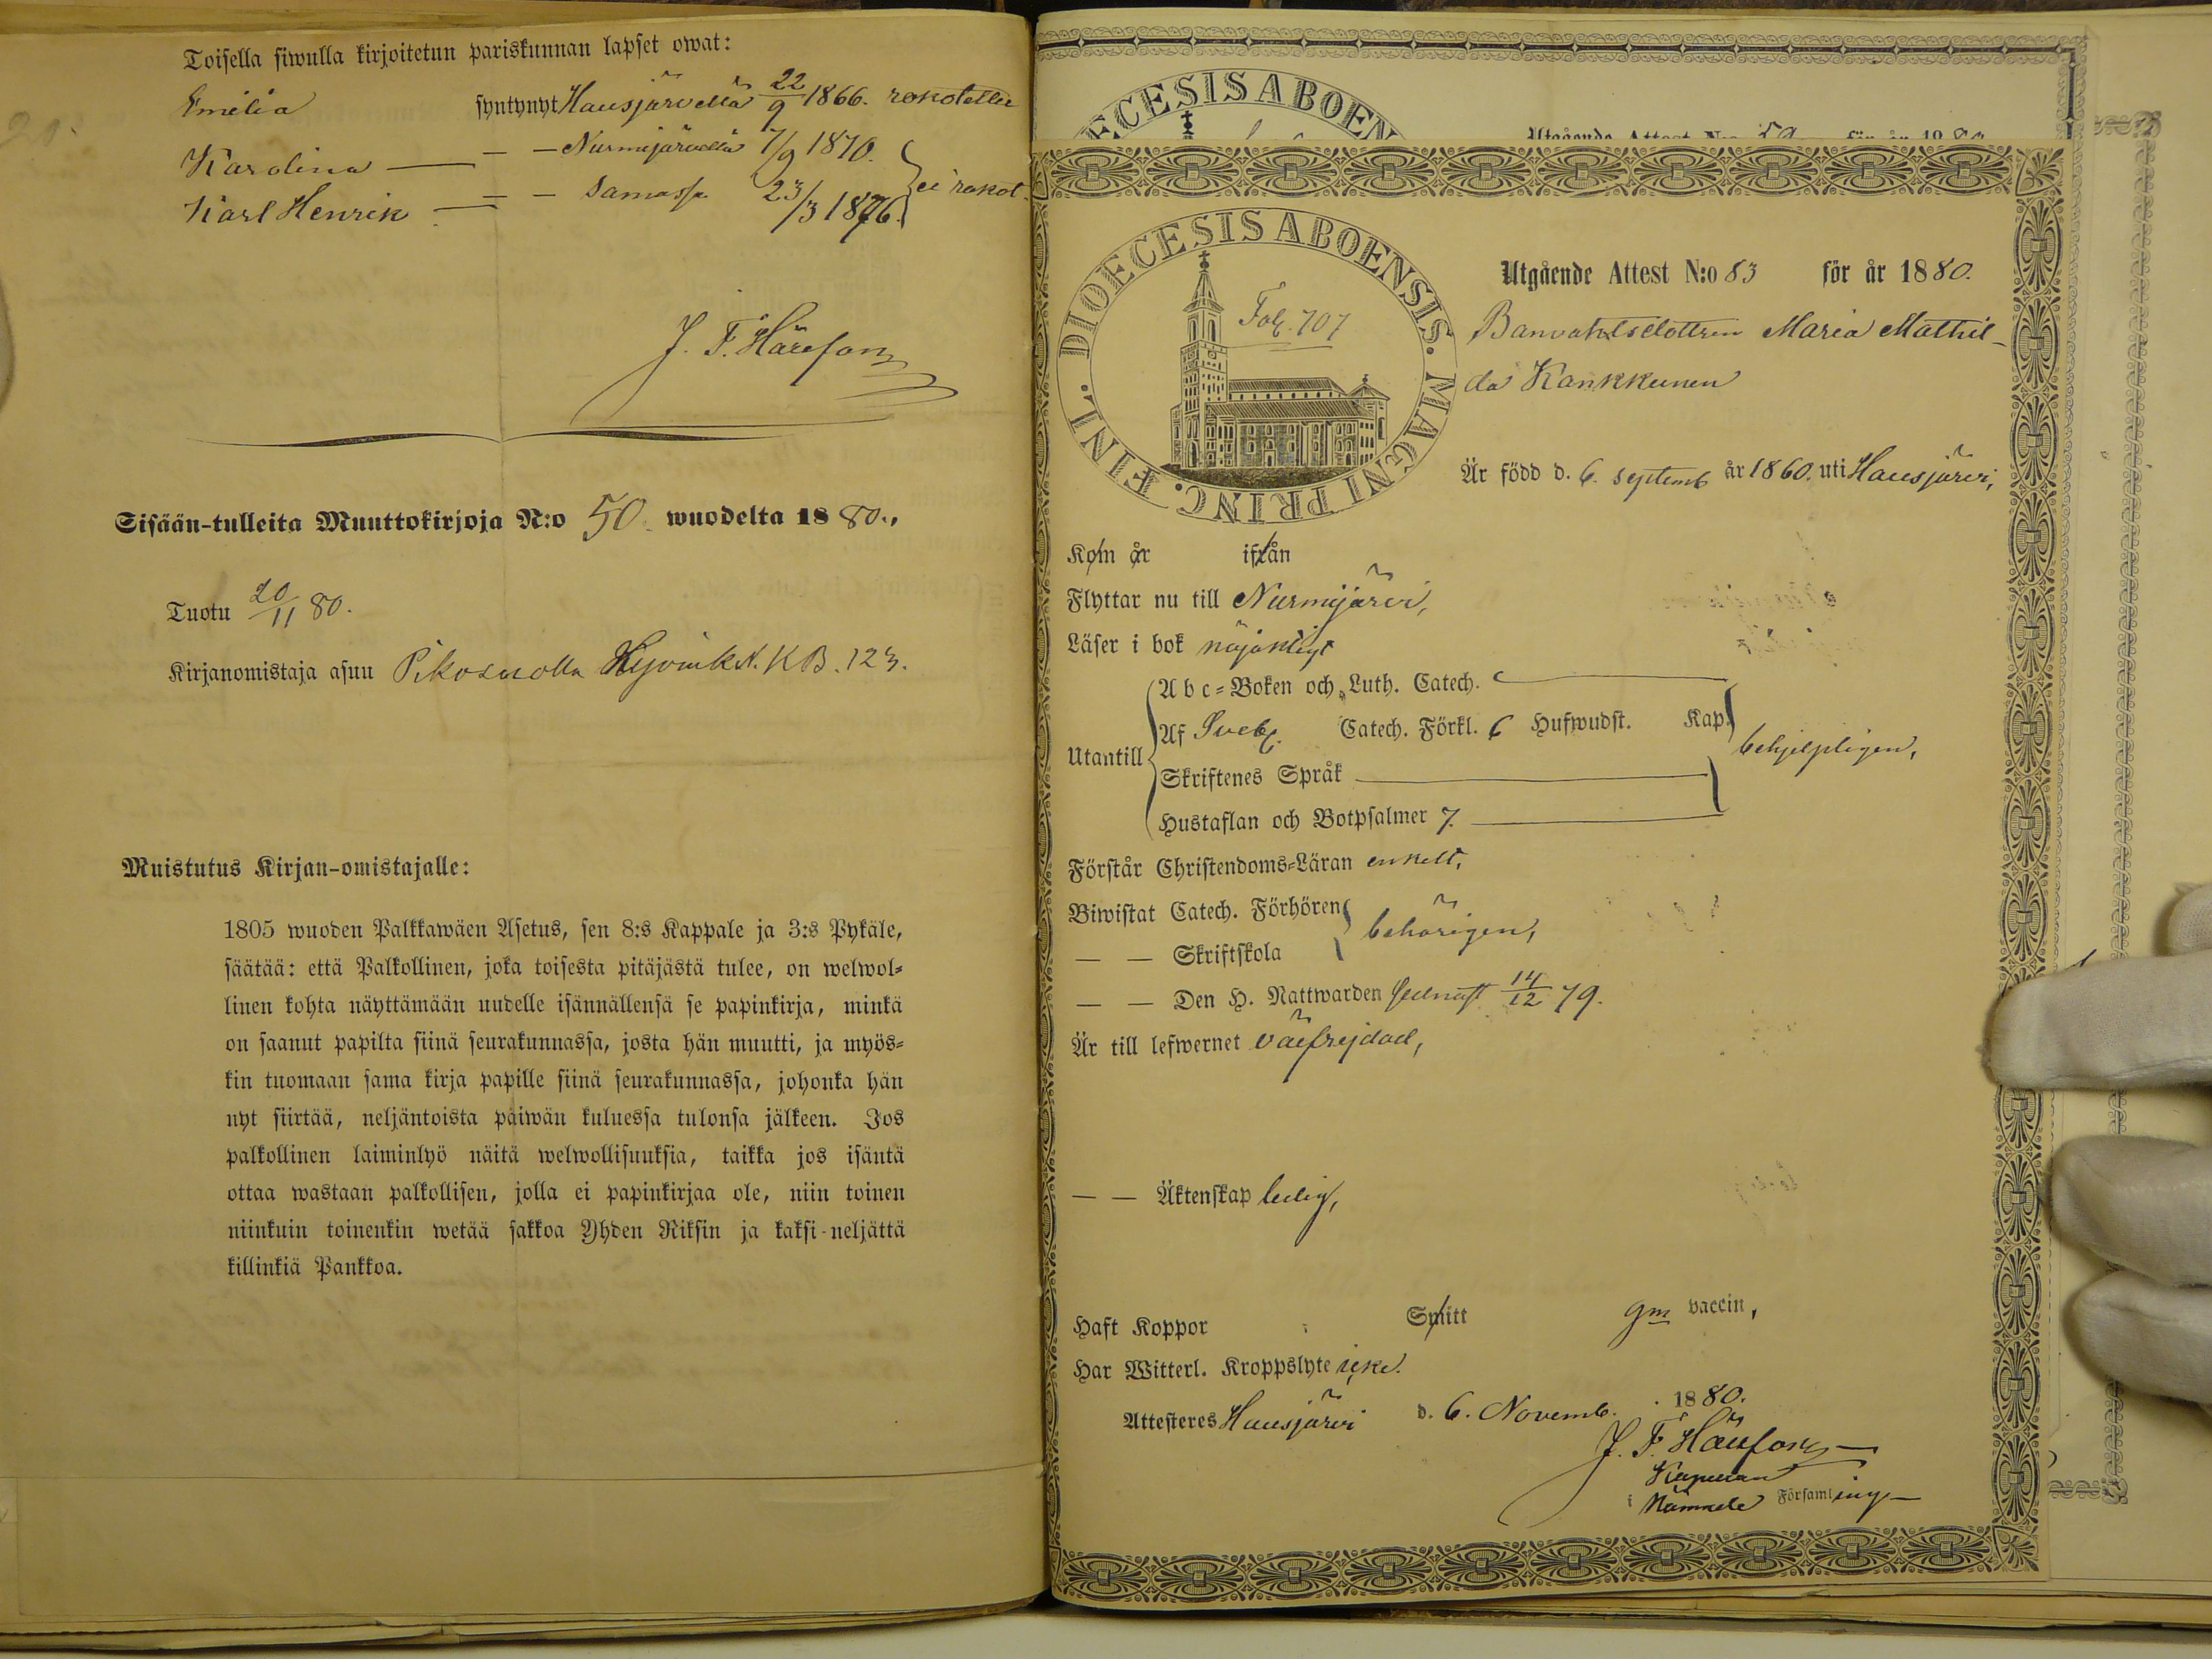 Toisella siwulla kirjoitetun pariskunnan lapset owat:
Emilia syntynyt Hausjärvellä 22/9 1866. rokotettu
Karolina — — — Nurmijärvellä 7/9 1870.
Karl Henrik — — — Samassa 23/3 1876. ei rokot.
J. F. Härefors
Sisään-tulleita Muuttokirjoja N:o 50. wuodelta 1880.,
Tuotu 20/11 80.
Kirjanomistaja asuu Hyvink. K. KB. 123.
Muistutus Kirjan-omistajalle:
1805 wuoden Palkkawäen Asetus, sen 8:s Kappale ja 3:s Pykäle,
säätää: että Palkollinen, joka toisesta pitäjästä tulee, on welwol-
linen kohta näyttämään uudelle isännällensä se papinkirja, minkä
on saanut papilta siinä seurakunnassa, josta hän muutti, ja myös-
kin tuomaan sama kirja papille siinä seurakunnassa, johonka hän
nyt siirtää, neljäntoista päiwän kuluessa tulonsa jälkeen. Jos
palkollinen laiminlyö näitä welwollisuuksia, taikka jos isäntä
ottaa wastaan palkollisen, jolla ei papinkirjaa ole, niin toinen
niinkuin toinenkin wetää sakkoa Yhden Riksin ja kaksi-neljättä
killinkiä Pankkoa.
ŒCESIS ABOEN
DIOECESIS ABOENSIS. MAGNI PRINC. FINL.
Fol. 707
Utgående Attest N:o 83 för år 1880.
Banvaktsdottren Maria Mathil-
da Kankkunen
Är född d. 6. septemb år 1860. uti Hausjärvi,
Kom år ifrån
Flyttar nu till Nurmijärvi,
Läser i bok nöjaktigt
Utantill
A b c-Boken och Luth. Catech. —
Af Sveb. Catech. Förkl. 6 Hufwudst. Kap.
Skriftenes Språk —
Hustaflan och Botpsalmer 7. —
behjelpligen,
Förstår Christendoms-Läran enkelt,
Biwistat Catech. Förhören
— — Skriftskola
behörigen,
— — Den H. Nattwarden senast 14/12 79.
Är till lefwernet väfrejdad,
— — Äktenskap ledig,
Haft Koppor Smitt gm vaccin,
Har Witterl. Kroppslyte icke.
Attesteres Hausjärvi d. 6. Novemb. 1880.
J. F. Härefors
Kapellan
i Nämnde Församling